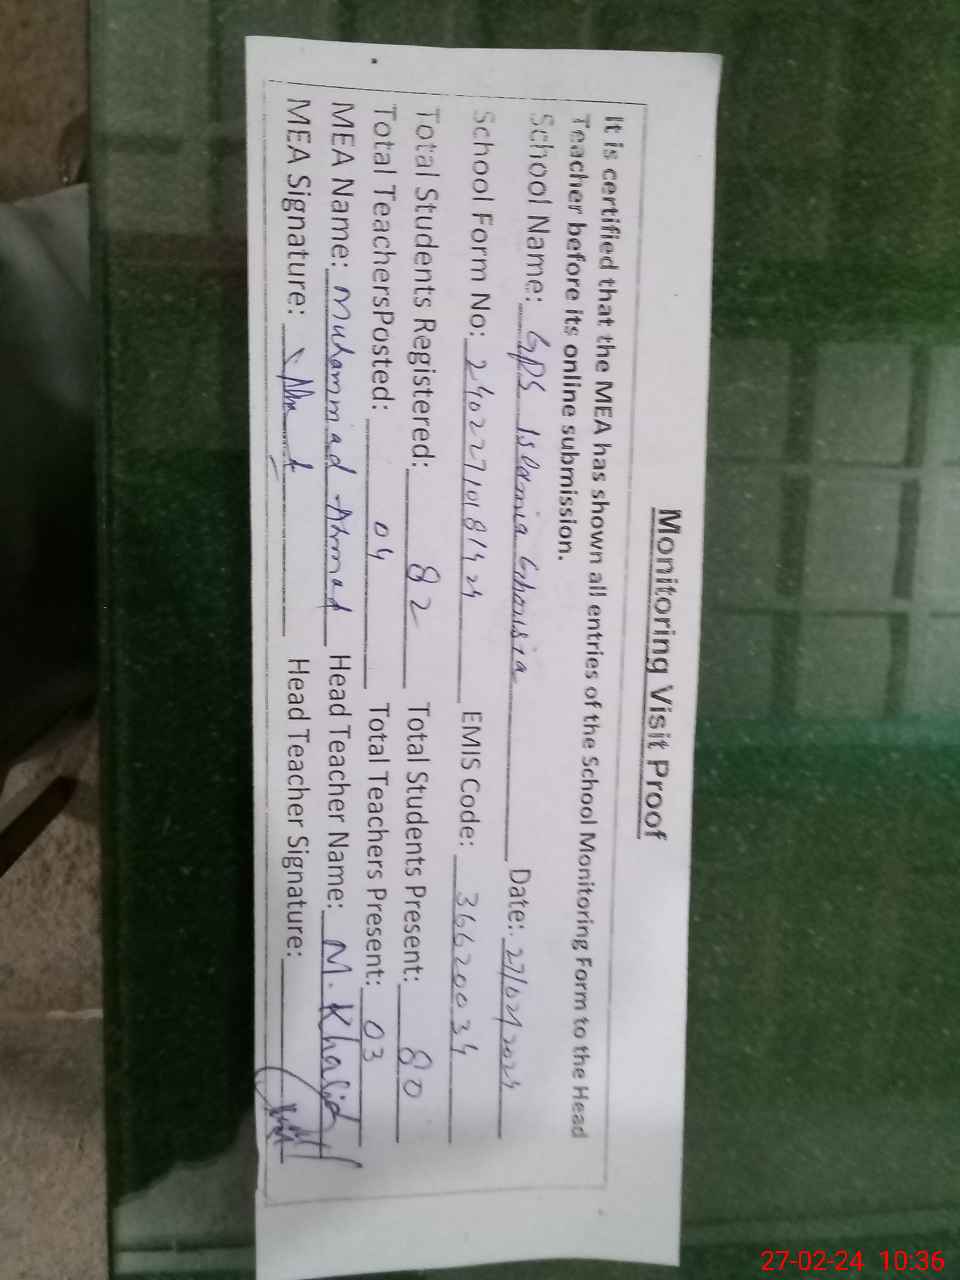 Monitoring Visit Proof
It is certified that the MEA has shown all entries of the School Monitoring Form to the Head
Teacher before its online submission.
School Name: GPS Islamia Ghousia Date: 27/02/2024
School Form No: EMIS Code: 36620034
Total Students Registered: 82 Total Students Present: 80
Total TeachersPosted: 04 Total Teachers Present: 03
MEA Name: Muhammad Ahmad Head Teacher Name: M. Khalid
MEA Signature: Head Teacher Signature:
27-02-24 10:36